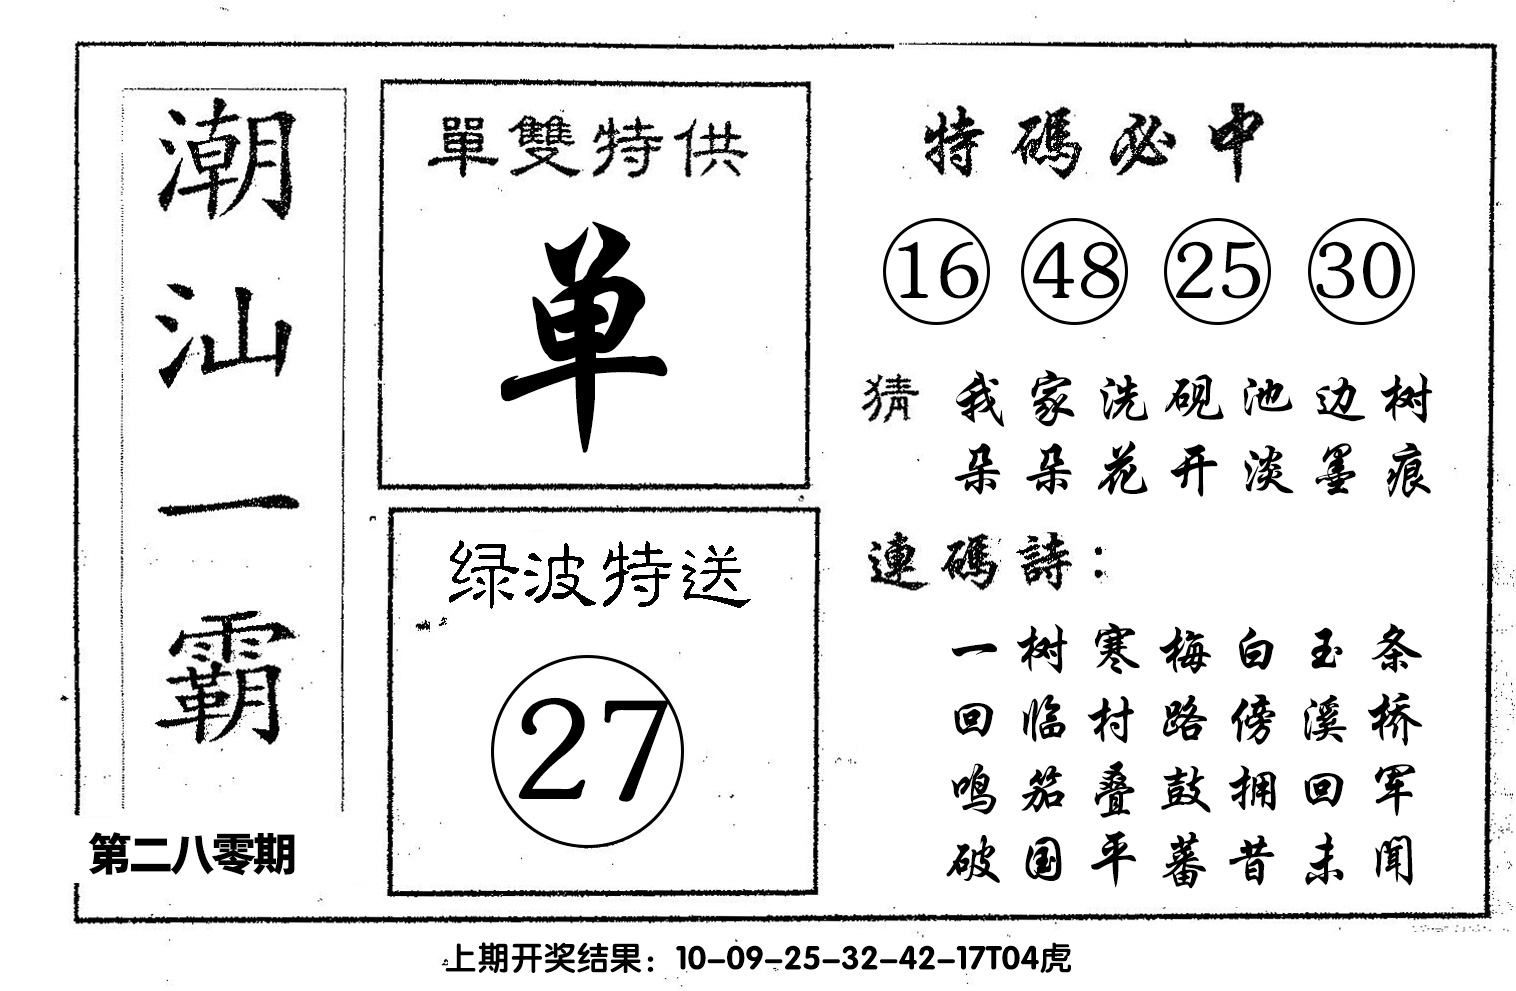 潮汕一霸
第二八零期
單雙特供
单
绿波特送
27
特碼必中
16 48 25 30
猜 我家洗砚池边树
朵朵花开淡墨痕
連碼詩：
一树寒梅白玉条
回临村路傍溪桥
鸣笳叠鼓拥回军
破国平蕃昔未闻
上期开奖结果：10-09-25-32-42-17T04虎